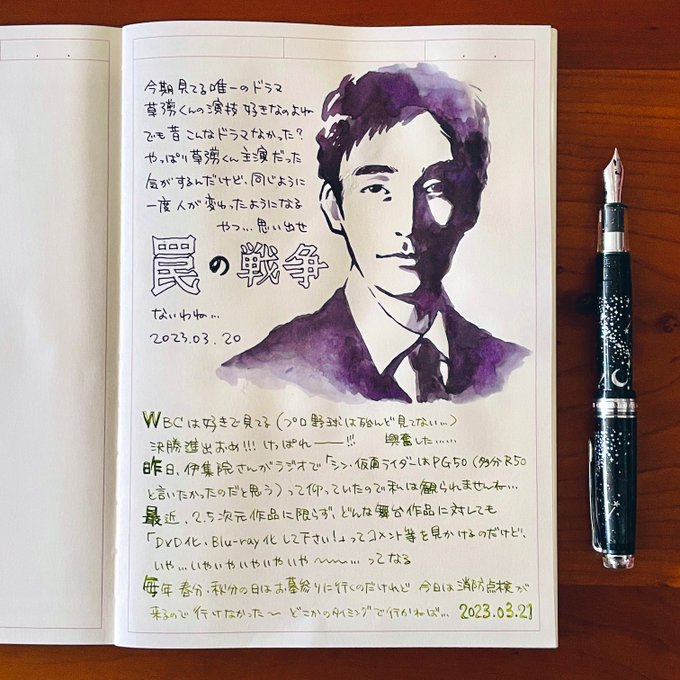 今期見てる唯一のドラマ
草彅くんの演技好きなのよね
でも昔こんなドラマなかった?
やっぱり草彅くん主演だった
気がするんだけど、同じように
一度人が変わったようになる
やつ…思い出せ
罠の戦争
ないわね…
2023.03.20
WBCは好きで見てる(プロ野球は殆んど見てない…)
決勝進出おめ!!! けっぱれ――!!! 興奮した……
昨日、伊集院さんがラジオで「シン・仮面ライダーはPG50(多分R50
と言いたかったのだと思う)って仰っていたので私は観られませんね…
最近、2.5次元作品に限らず、どんな舞台作品に対しても
「DVD化、Blu-ray化して下さい!」ってコメント等を見かけるのだけど、
いや…いやいやいやいや〜〜…ってなる
毎年 春分・秋分の日はお墓参りに行くのだけれど 今日は消防点検が
来るので行けなかった〜 どこかのタイミングで行かねば… 2023.03.21